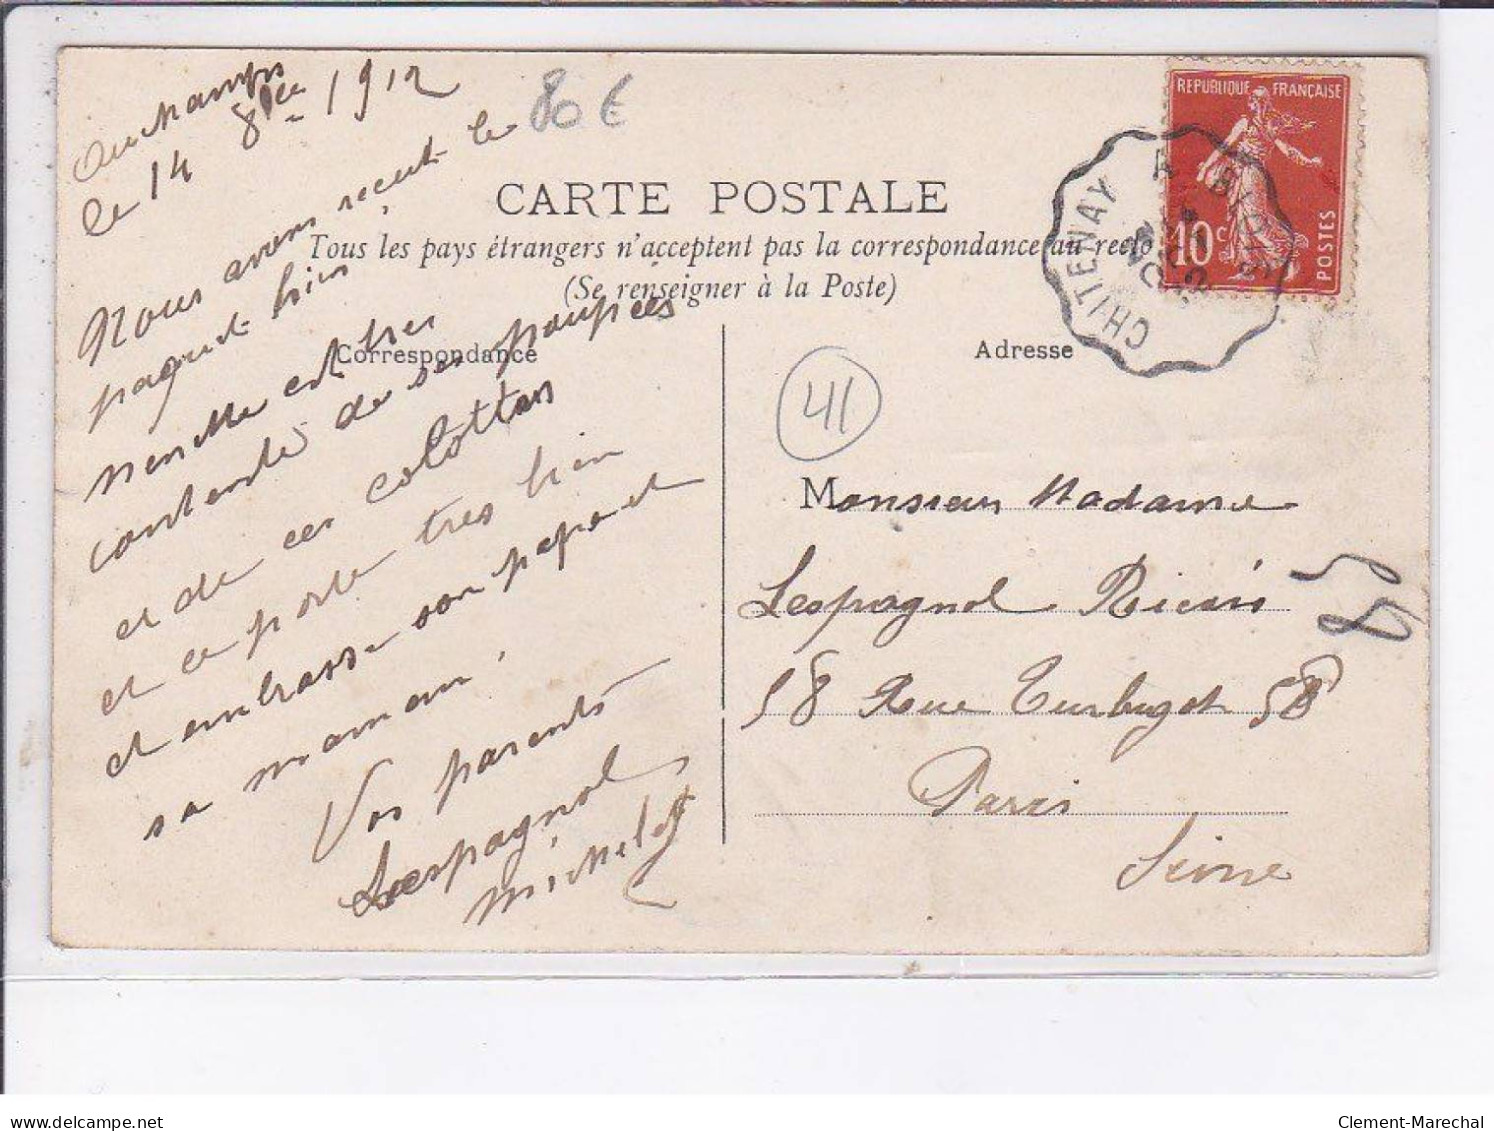 Ouchamps
le 14 8bre 1912
80 €
Nous avons reçut le
paquet bien
ninette est tres
contente de ses poupées
et de ces culottes
et ce porte tres bien
et embrasse son papa et
sa maman
Vos parents
Lespagnol
michelet
REPUBLIQUE FRANÇAISE
10c
POSTES
CHITENAY A BLOIS
CARTE POSTALE
Tous les pays étrangers n'acceptent pas la correspondance au recto
(Se renseigner à la Poste)
Correspondance
Adresse
41
Monsieur Madame
Lespagnol
58 Rue Turbigot 58
Paris
Seine
58
delcampe.net
Clement-Marechal